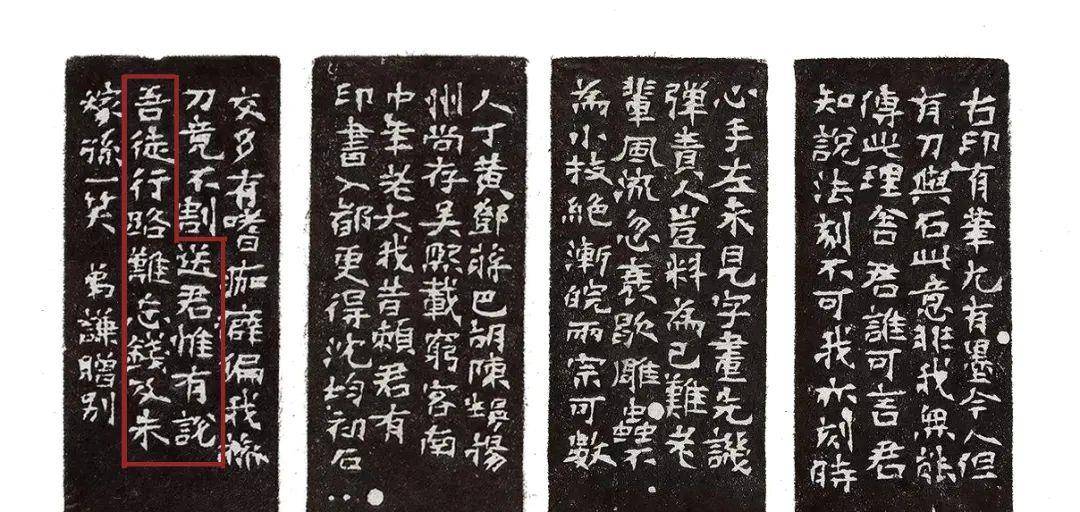 古印有筆尤有墨今人但
有刀與石此意非我無能
傳此理舍君誰可言君
知說法刻不可我亦刻時
心手左未見字畫先譏
彈責人豈料為己難老
輩風流忽衰歇雕蟲不
為小技絕浙皖兩宗可數
人丁黃鄧蔣巴胡陳曼生揚
州尚存吳熙載窮客南
中年老大我昔賴君有
印書入都更得沈均初石
交多有嗜痂癖偏我操
刀竟不割送君惟有說
吾徒行路難忘錢及朱
稼孫一笑 弟謙贈別